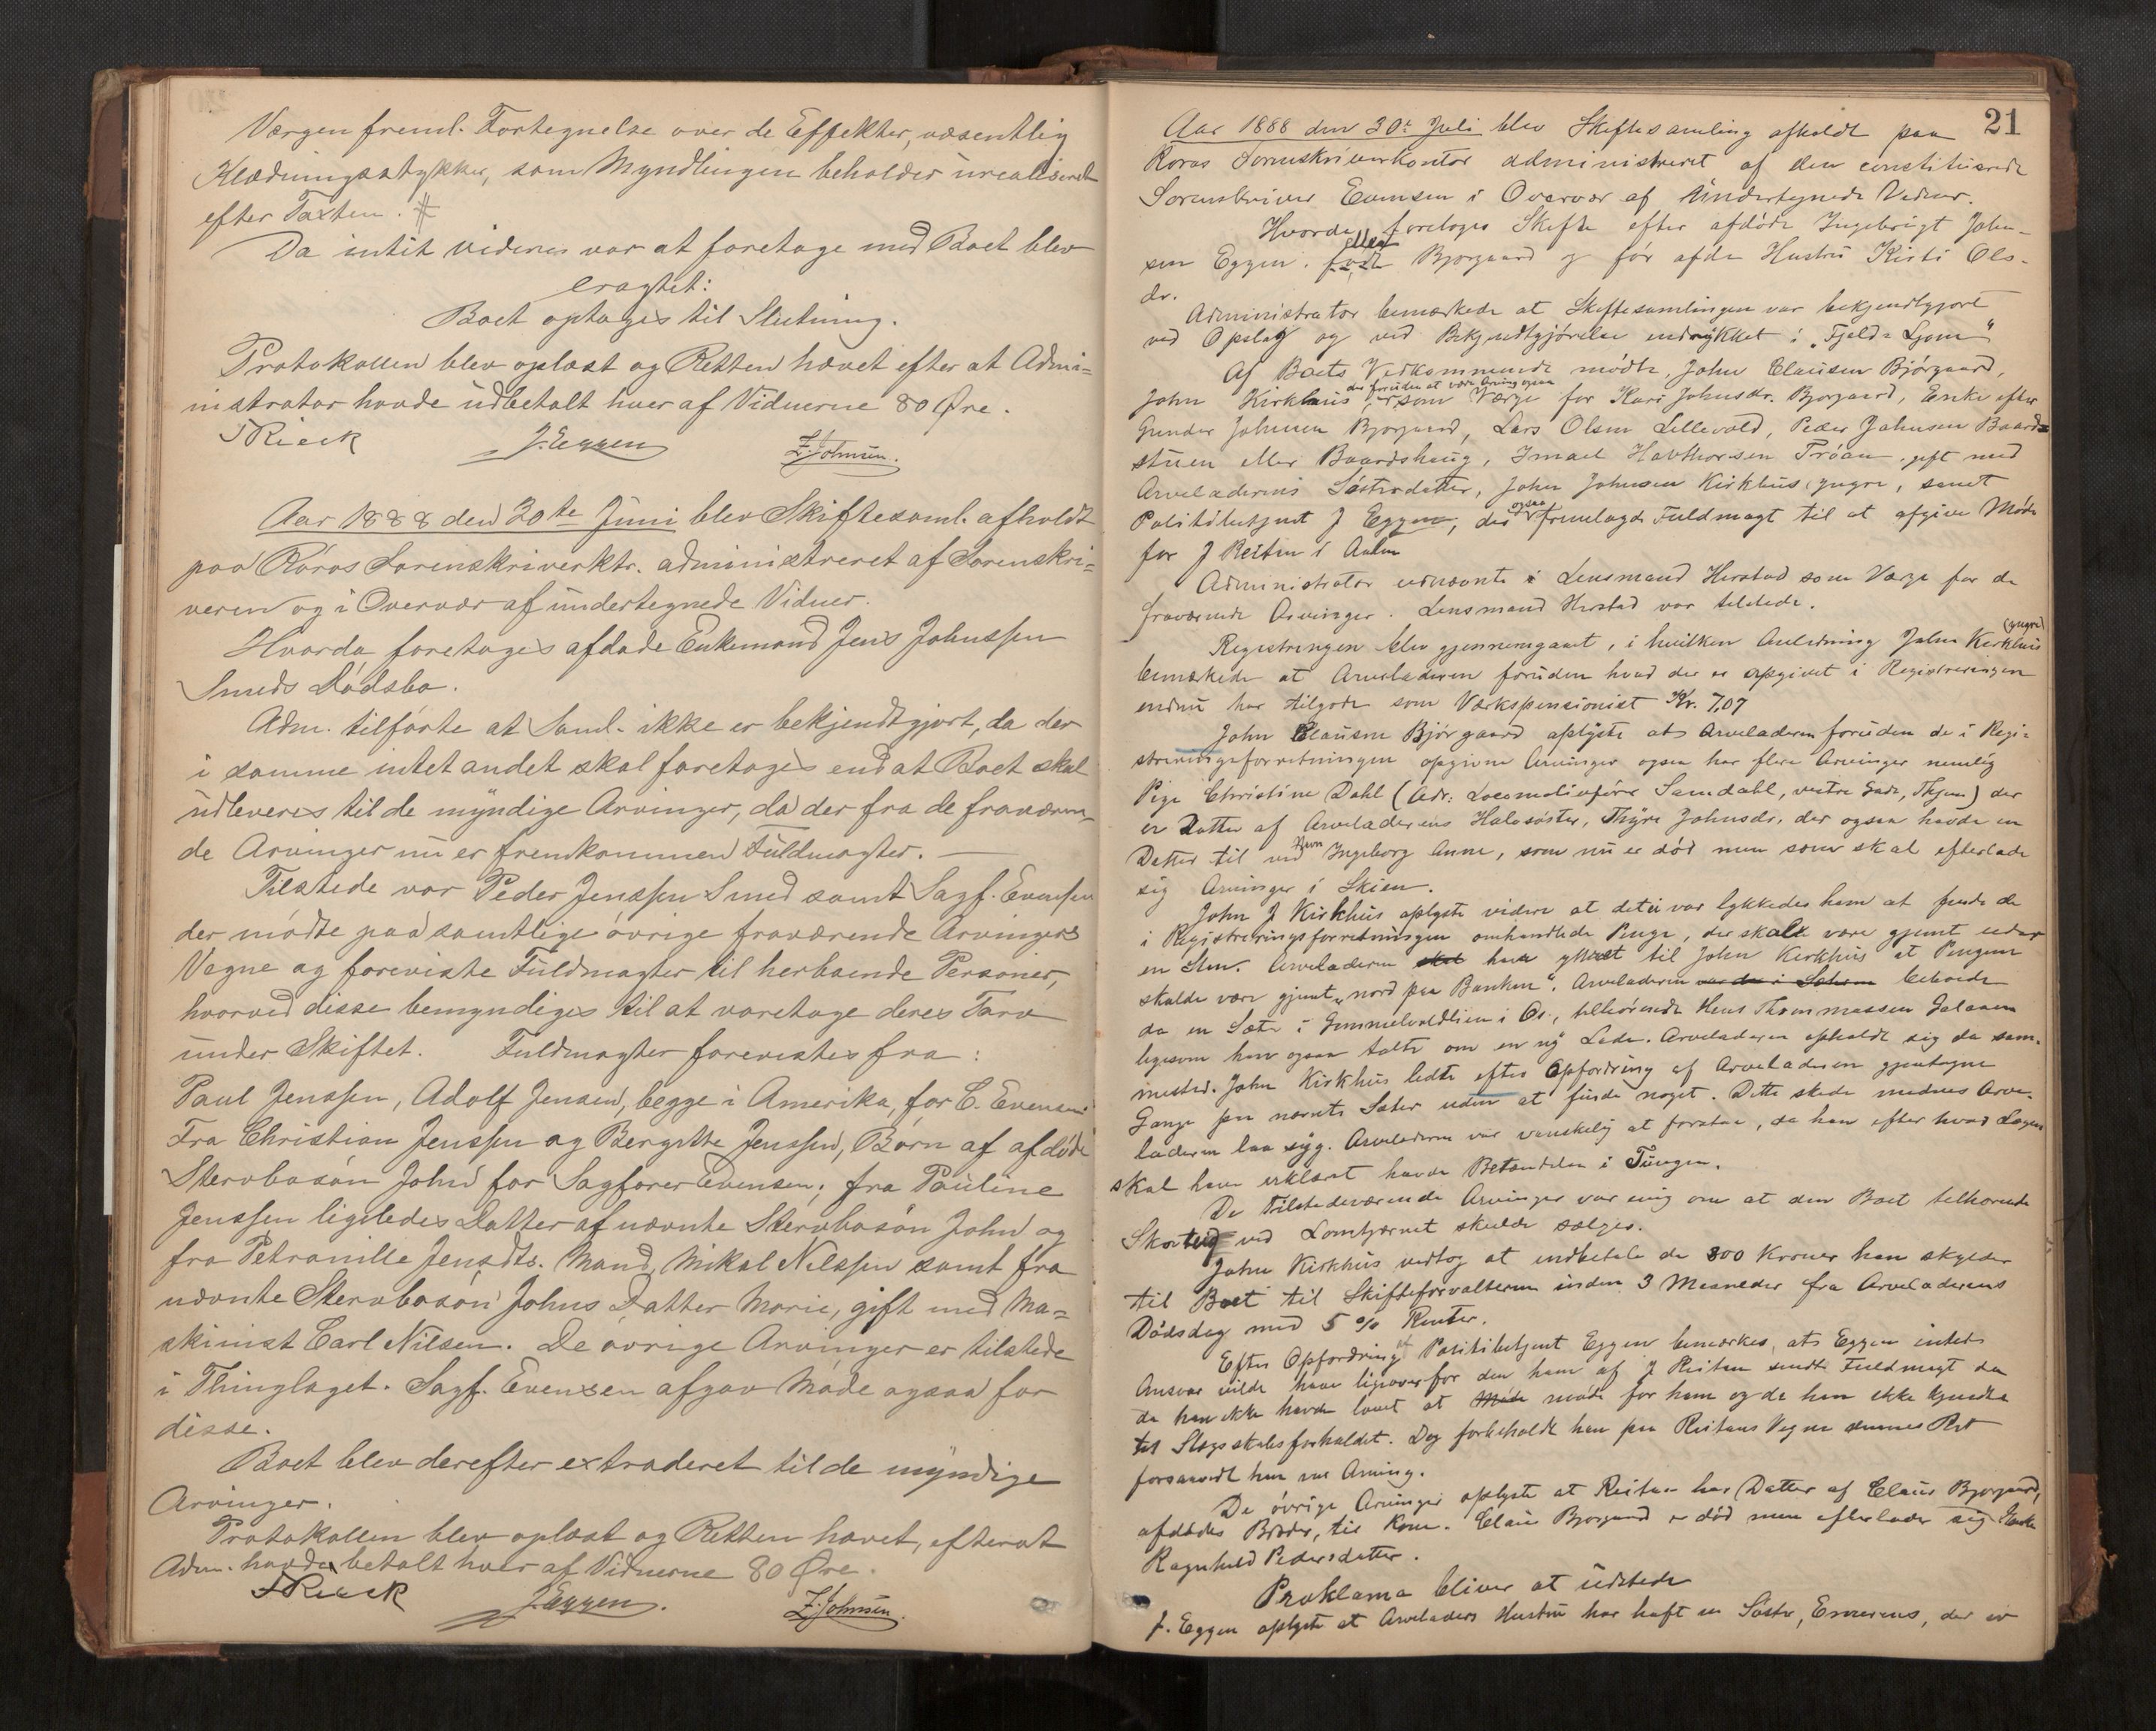 Værgen freml. Fortegnelse over de Effekter, væsentlig
Klædningsstykker, som Myndlingen beholder urealiseret
efter Taxten. #
Da intet videre var at foretage med Boet blev
eragtet:
Boet optages til Slutning.
Protokollen blev oplæst og Retten hævet efter at Admi-
nistrator havde udbetalt hver af Vidnerne 80 Øre.
Rieck J. Eggen Z. Johnsen.
Aar 1888 den 20te Juni blev Skiftesaml. afholdt
paa Röros Sorenskriverktr. administreret af Sorenskri-
veren og i Overvær af undertegnede Vidner.
Hvorda foretoges afdøde Enkemand Jens Johnssen
Smeds Dödsbo.
Adm. tilförte at Saml. ikke er bekjendtgjort, da der
i samme intet andet skal foretages end at Boet skal
udleveres til de myndige Arvinger, da der fra de fraværen-
de Arvinger nu er fremkommen Fuldmagter.
Tilstede var Peder Jenssen Smed samt Sagf. Evensen
der mödte paa samtlige övrige fraværende Arvingers
Vegne og foreviste Fuldmagter til herboende Personer,
hvorved disse bemyndiges til at varetage deres Tarv
under Skiftet. Fuldmagter forevistes fra:
Paul Jenssen, Adolf Jensen, begge i Amerika, for C. Evensen
Fra Christian Jenssen og Bergitte Jenssen, Börn af afdöde
Stervbosön John for Sagförer Evensen; fra Pauline
Jenssen ligeledes Datter af nævnte Stervbosön John og
fra Petronille Jensdts. Mand, Mikal Nilssen samt fra
nævnte Stervbosön Johns Datter Marie, gift med Ma-
skinist Carl Nilsen. De övrige Arvinger er tilstede
i Thinglaget. Sagf. Evensen afgav Möde ogsaa for
disse.
Boet blev derefter extraderet til de myndige
Arvinger.
Protokollen blev oplæst og Retten hævet, efterat
Adm. havde betalt hver af Vidnerne 80 Øre.
Rieck J. Eggen. Z. Johnsen.
21
Aar 1888 den 30t Juli blev Skiftesamling afholdt paa
Röros Sorenskriverkontor administreret af den constituerede
Sorenskriver Evensen i Overvær af Undertegnede Vidner.
Hvorda foretoges Skifte efter afdöde Ingebrigt John-
sen Eggen eller Bjorgaard og för afdøde Hustru Kirsti Ols-
dr.
Administrator bemærkede at Skiftesamlingen var bekjendtgjort
ved Opslag og ved Bekjendtgjörelse indrykket i "Fjeld-Ljom"
Af Boets Vedkommende mödte John Clausen Björgaard,
John Kirkhus der foruden at være Arving ogsaa er som Værge for Kari Johnsdr. Bjorgaard, Enke efter
Gunder Johnsen Bjorgaard, Lars Olsen Lillevold, Peder Johnsen Baard-
stuen eller Baardshaug, Ismael Havthorsen Tröan gift med
Arveladerens Söstersdatter, John Johnsen Kirkhus yngre, samt
Politibetjent J Eggen, der ogsaa fremlagde Fuldmagt til at afgive Möde
for J Reitan i Aalen
Administrator udnævnte Lensmand Hirstad som Værge for de
fraværende Arvinger. Lensmand Hirstad var tilstede.
Registreringen blev gjennemgaaet, i hvilken Anledning John Kirkhus (yngre)
bemærkede at Arveladeren foruden hvad der er opgivet i Registreringen
endnu har tilgode som Værkspensionist Kr. 7,07
John Clausen Björgaard oplyste at Arveladeren foruden de i Regi-
streringsforretningen opgivne Arvinger ogsaa har flere Arvinger nemlig
Pige Christine Dahl (Adr: Locomotivförer Samdahl, vestre Gade, Thjem) der
er Datter af Arveladerens Halvsöster, Thyra Johnsdr. der ogsaa havde en
Datter til ved Navn Ingeborg Anne, som nu er död men som skal efterlade
sig Arvinger i Skien.
John J Kirkhus oplyste videre at det ei var lykkedes ham at finde de
i Registreringsforretningen omhandlede Penge, der skal være gjemt under
en Sten. Arveladeren skal have yttret til John Kirkhus at Pengene
skulde være gjemt "nord paa Banken". Arveladeren beboede
da en Sæter i Gammelvoldlien i Os, tilhörende Hans Thommassen
ligesom han ogsaa talte om en ny Lade. Arveladeren opholdt sig da sam-
mesteds. John Kirkhus ledte efter Opfordring af Arveladeren gjentagne
Gange paa nævnte Sæter uden at finde noget. Dette skede medens Arve-
laderen laa syg. Arveladeren var vanskelig at forstaa, da han efter hvad Lægen
skal have erklæret havde Betændelse i Tungen.
De Tilstedeværende Arvinger var enig om at den Boet tilhörende
Skovteig ved Lomtjernet skulde sælges.
John Kirkhus vedtog at indbetale de 300 Kroner han skylder
til Boet til Skifteforvalteren inden 3 Maaneder fra Arveladerens
Dödsdag med 5 % Renter.
Efter Opfordring af Politibetjent Eggen bemærkes, at Eggen intet
Ansvar vilde have ligeoverfor den ham af J Reitan sendte Fuldmagt da
da han ikke havde lovet at Möde möde for ham og da han ikke kjendte
til Slægsskabsforholdet. Dog forbeholdt han paa Reitans Vegne dennes Ret
forsaavidt han var Arving.
De övrige Arvinger oplyste at Reitan har Datter af Claus Bjorgaard,
afdödes Broder, til Kone. Claus Bjorgaard er död men efterlader sig Enke
Ragnhild Pedersdatter.
Proklama bliver at udstede
J. Eggen oplyste at Arveladers Hustru har haft en Söster, der er